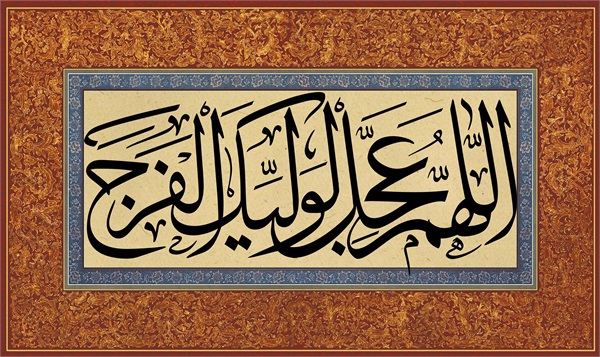 اللّهُمَّ عَجِّل لِوَلِیِّکَ الفَرَج